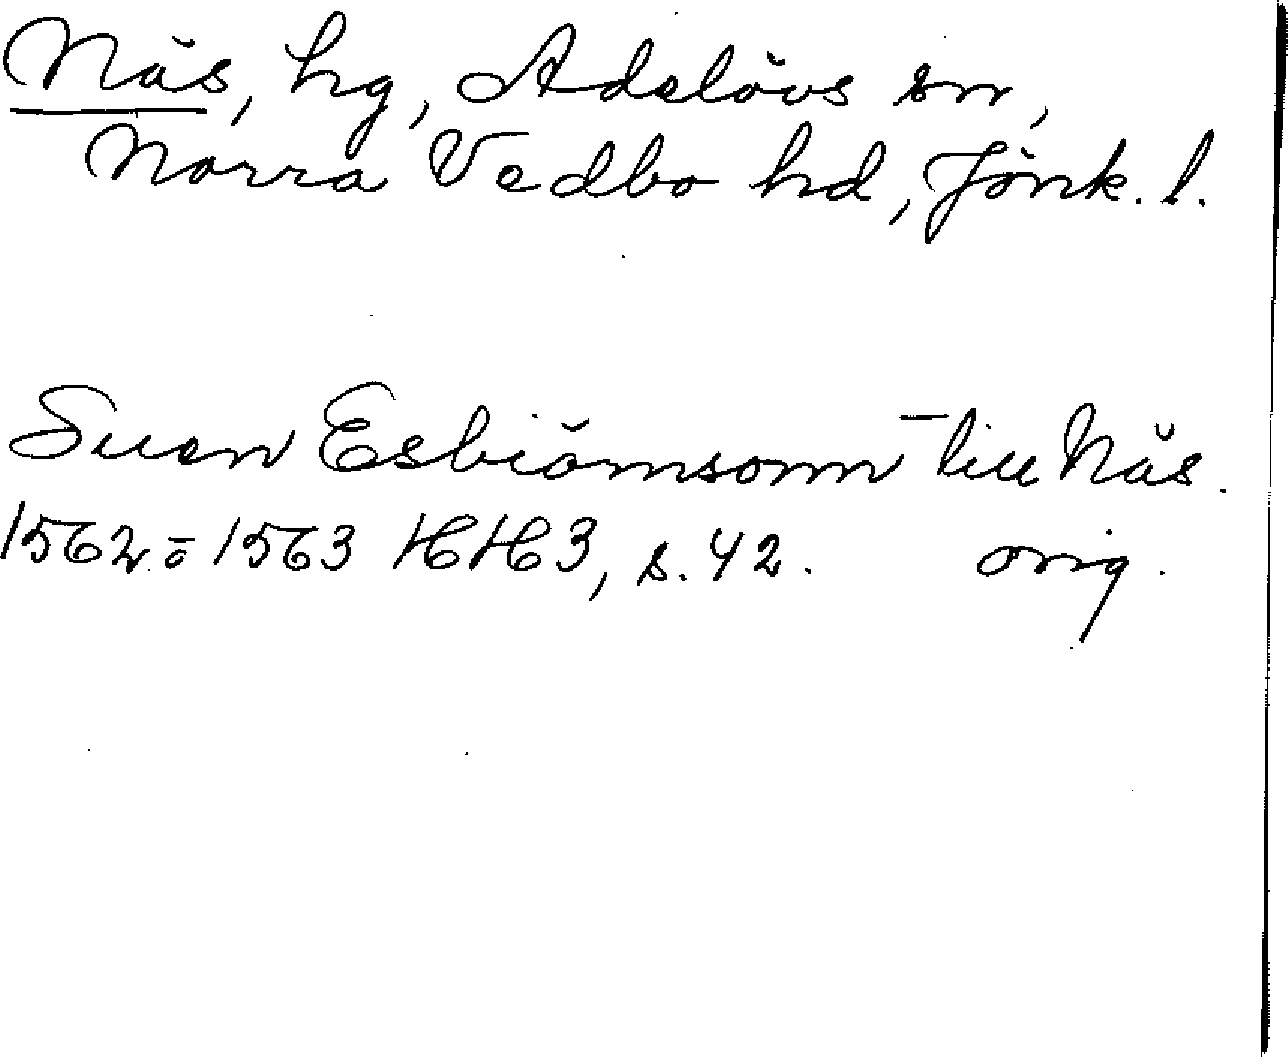 Näs, hg, Adelövs sn,
Norra Vedbo hd, Jönk. l.
Suen Esbiörnsonn till Näs.
1562 o 1563 HH 3, s. 42. orig.